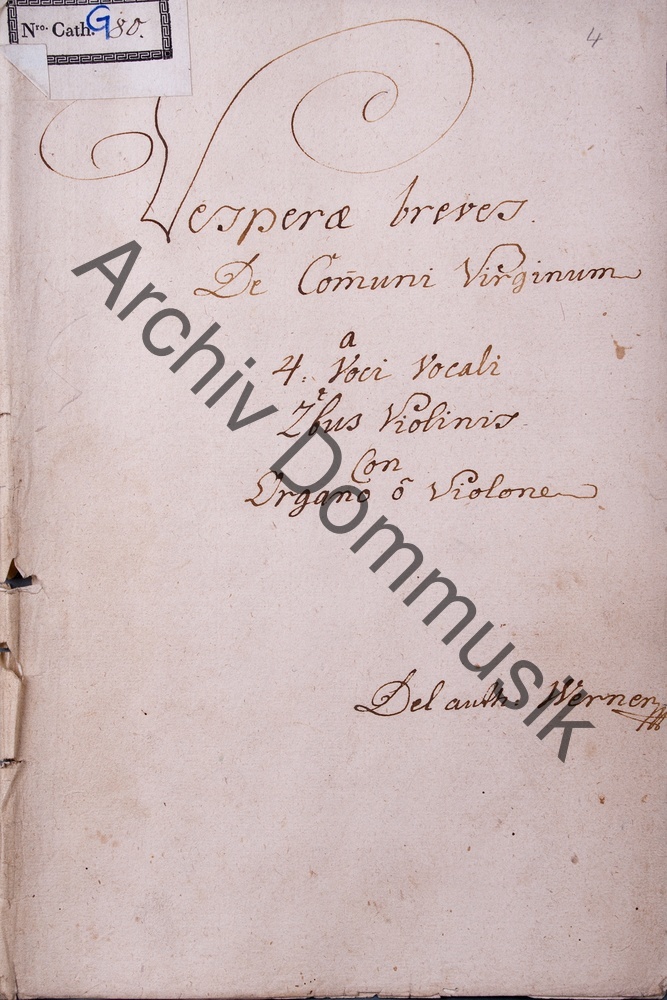 Nro. Cath. G 80.
4
Vesperæ breves.
De Com̄uni Virginum
a
4. Voci Vocali
e
2bus Violinis
Con
Organo ô Violone
Del auth. Werner
Archiv Dommusik